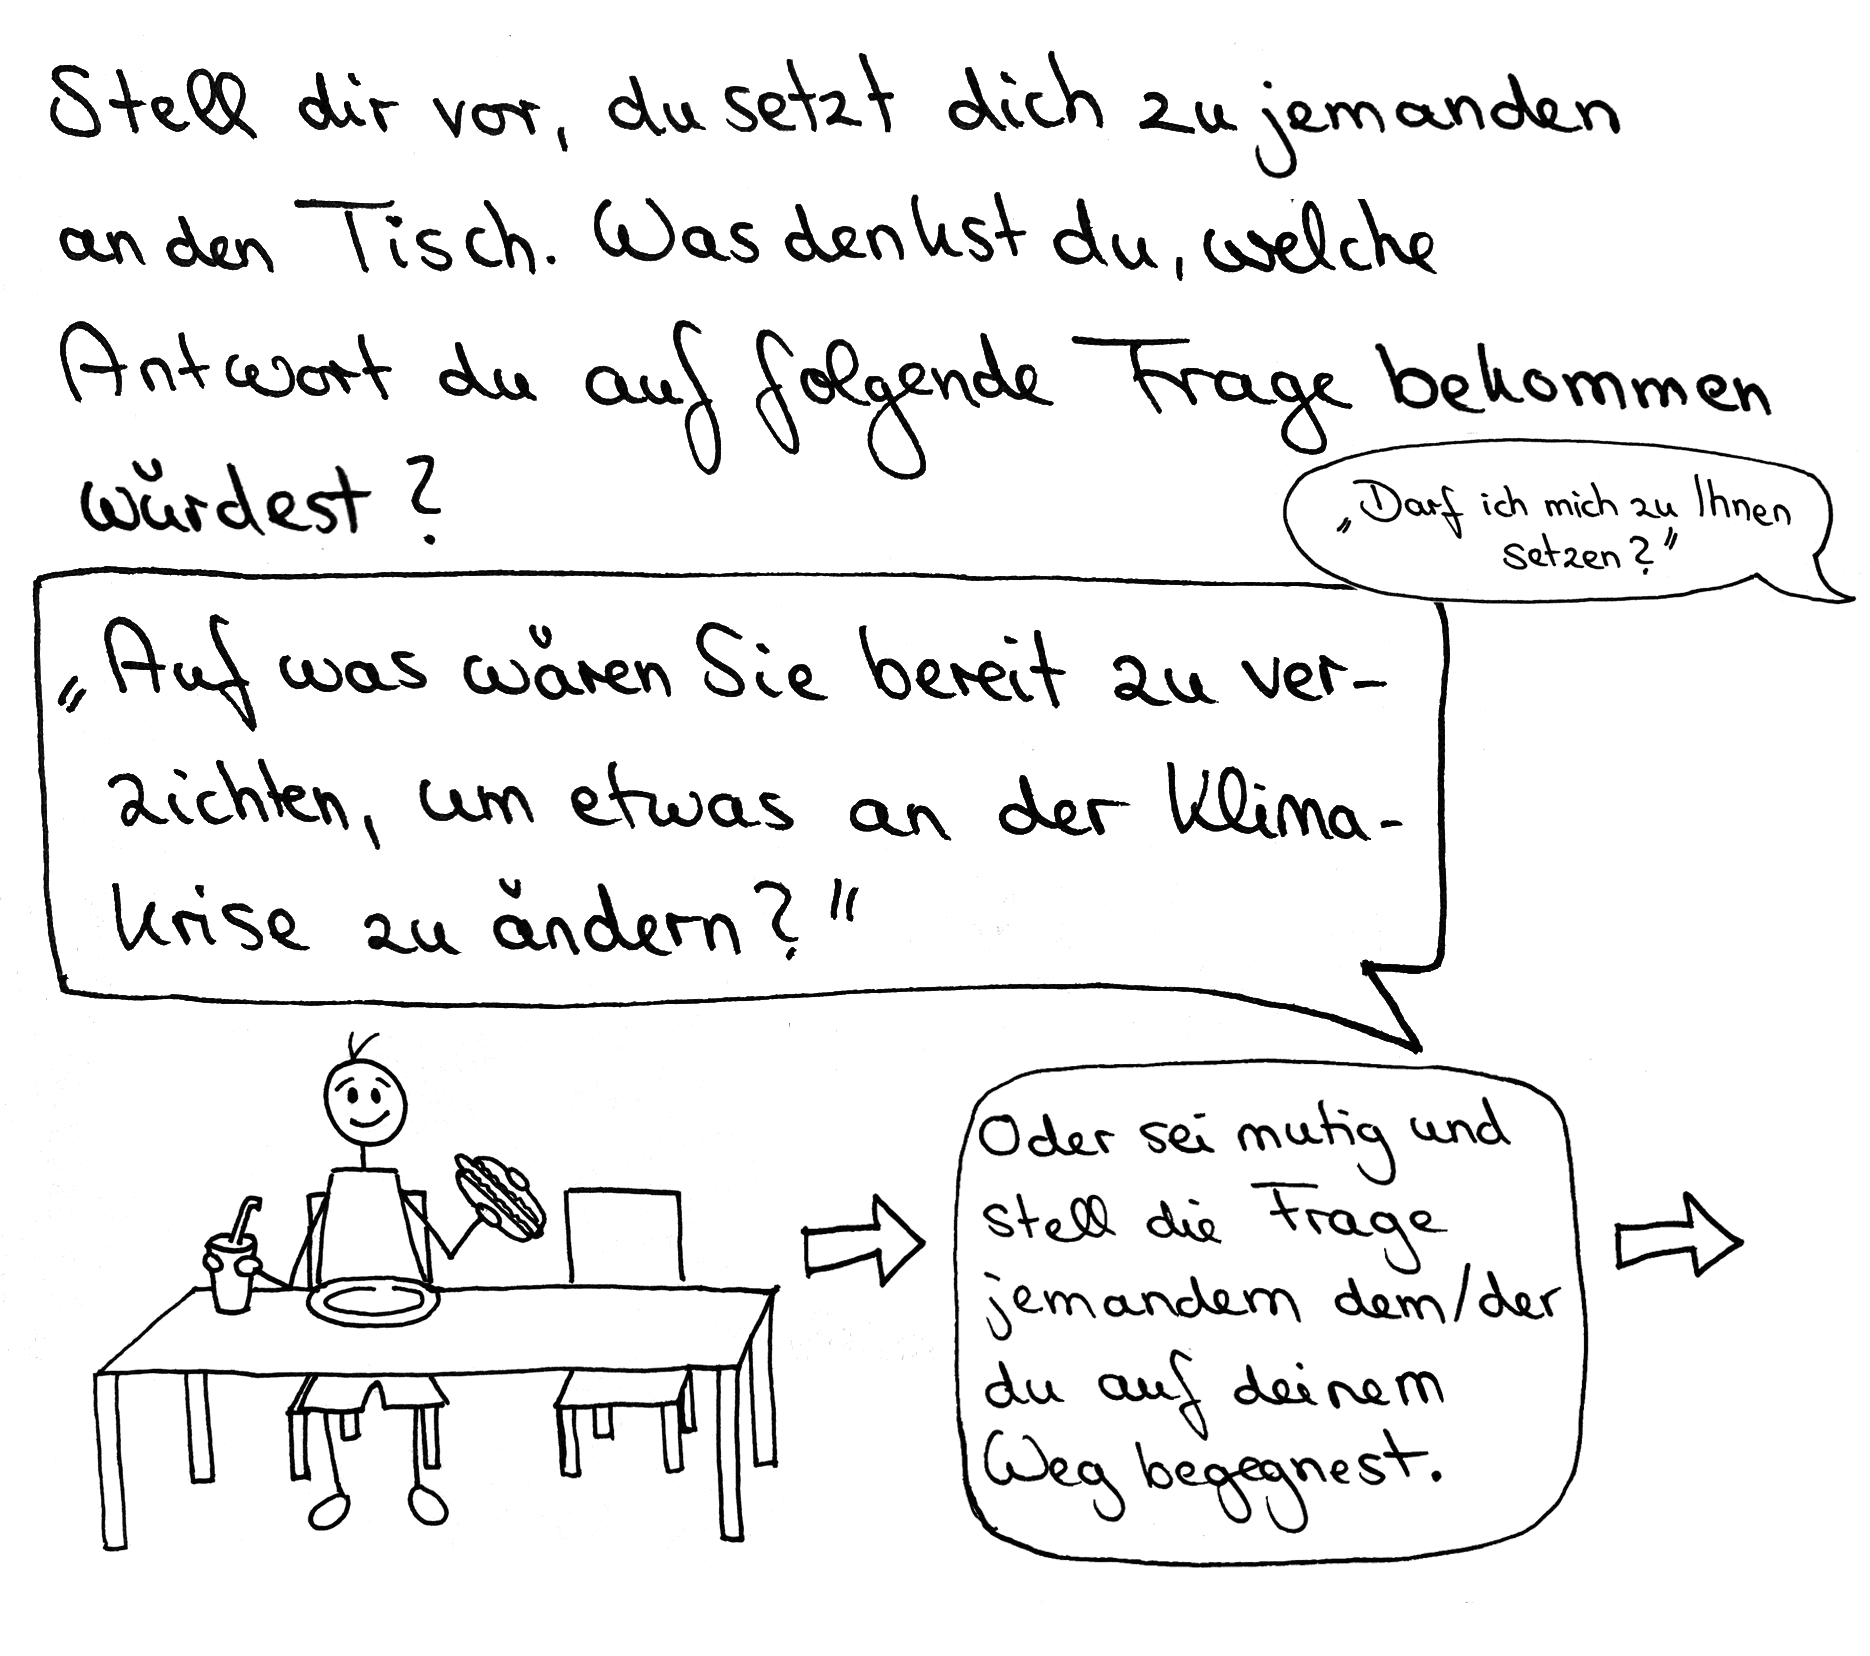 Stell dir vor, du setzt dich zu jemanden
an den Tisch. Was denkst du, welche
Antwort du auf folgende Frage bekommen
würdest?
„Darf ich mich zu Ihnen
setzen?"
„Auf was wären Sie bereit zu ver-
zichten, um etwas an der Klima-
krise zu ändern?"
Oder sei mutig und
stell die Frage
jemandem dem/der
du auf deinem
Weg begegnest.